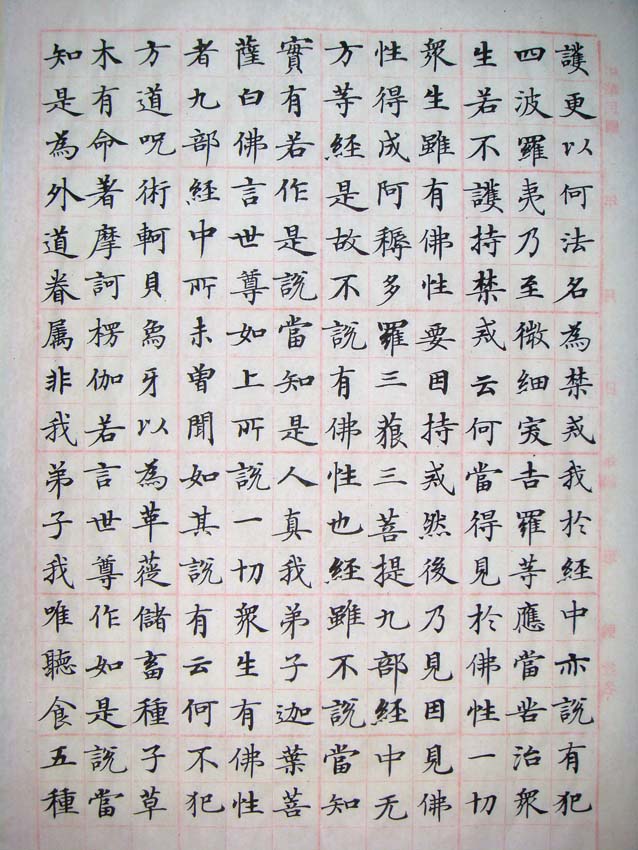 護更以何法名為禁戒我於經中亦說有犯
四波羅夷乃至微細突吉羅等應當苦治衆
生若不護持禁戒云何當得見於佛性一切
衆生雖有佛性要因持戒然後乃見因見佛
性得成阿耨多羅三藐三菩提九部經中无
方等經是故不說有佛性也經雖不說當知
實有若作是說當知是人真我弟子迦葉菩
薩白佛言世尊如上所說一切衆生有佛性
者九部經中所未曾聞如其說有云何不犯
方道呪術軻貝象牙以為革蓰儲畜種子草
木有命著摩訶楞伽若言世尊作如是說當
知是為外道眷属非我弟子我唯聽食五種